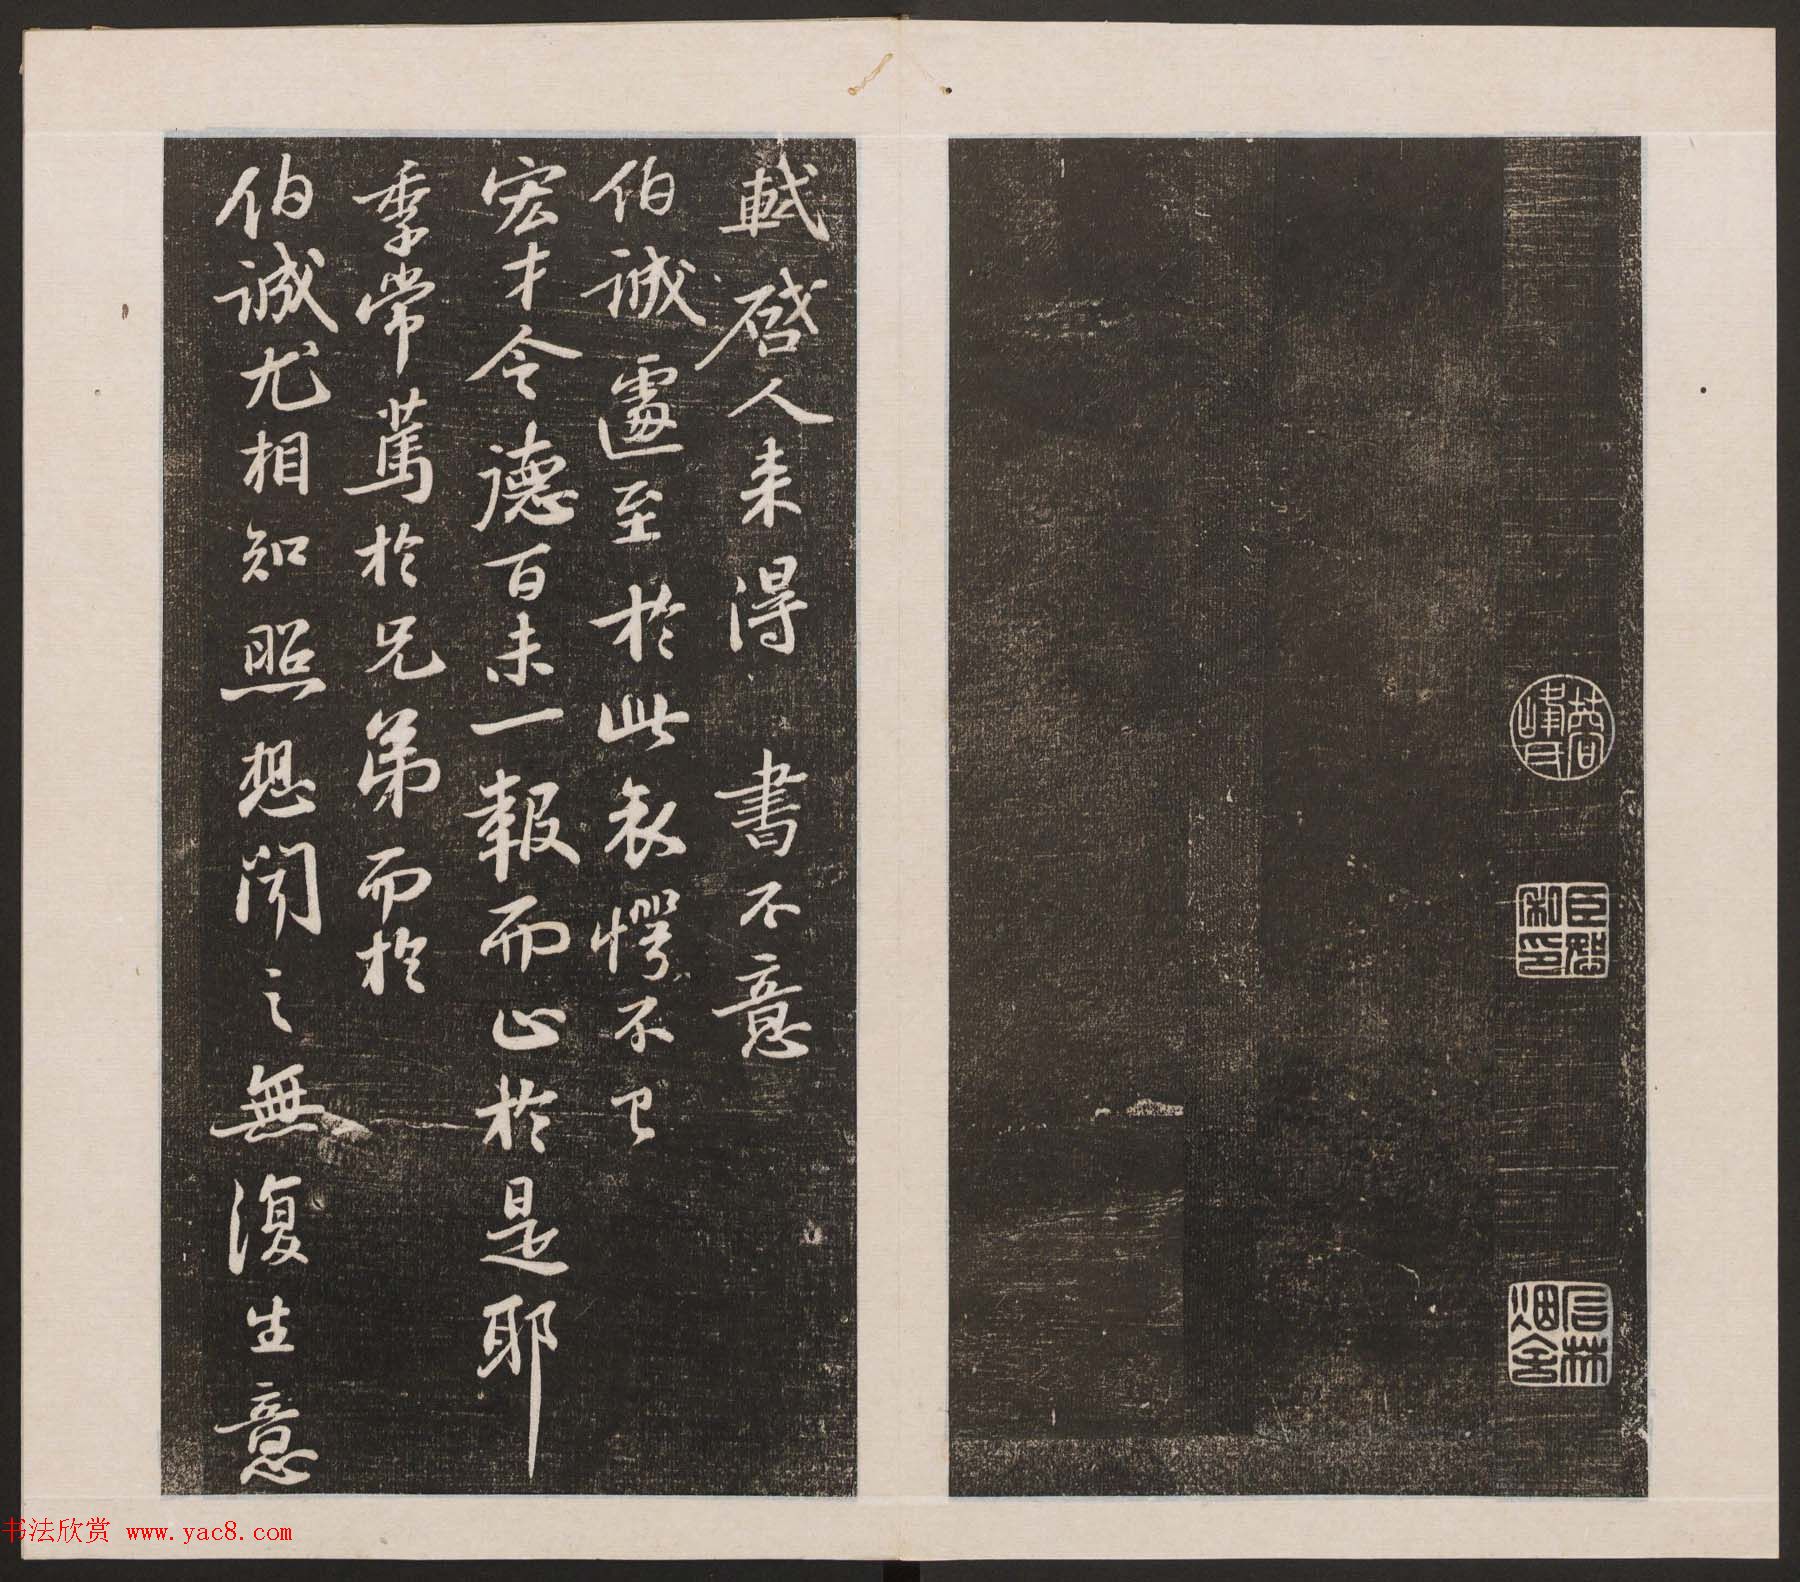 蓉峰
軾啓人來得書不意
伯誠遽至於此哀愕不已
宏才令德百未一報而止於是耶
季常篤於兄弟而於
伯誠尤相知照想聞之無復生意
书法欣赏 www.yac8.com